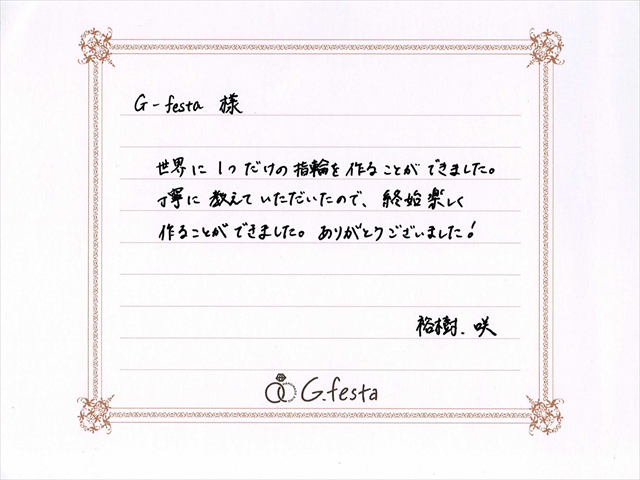 G-festa 様
世界に1つだけの指輪を作ることができました。
丁寧に教えていただいたので、終始楽しく
作ることができました。ありがとうございました!
裕樹.咲
G.festa